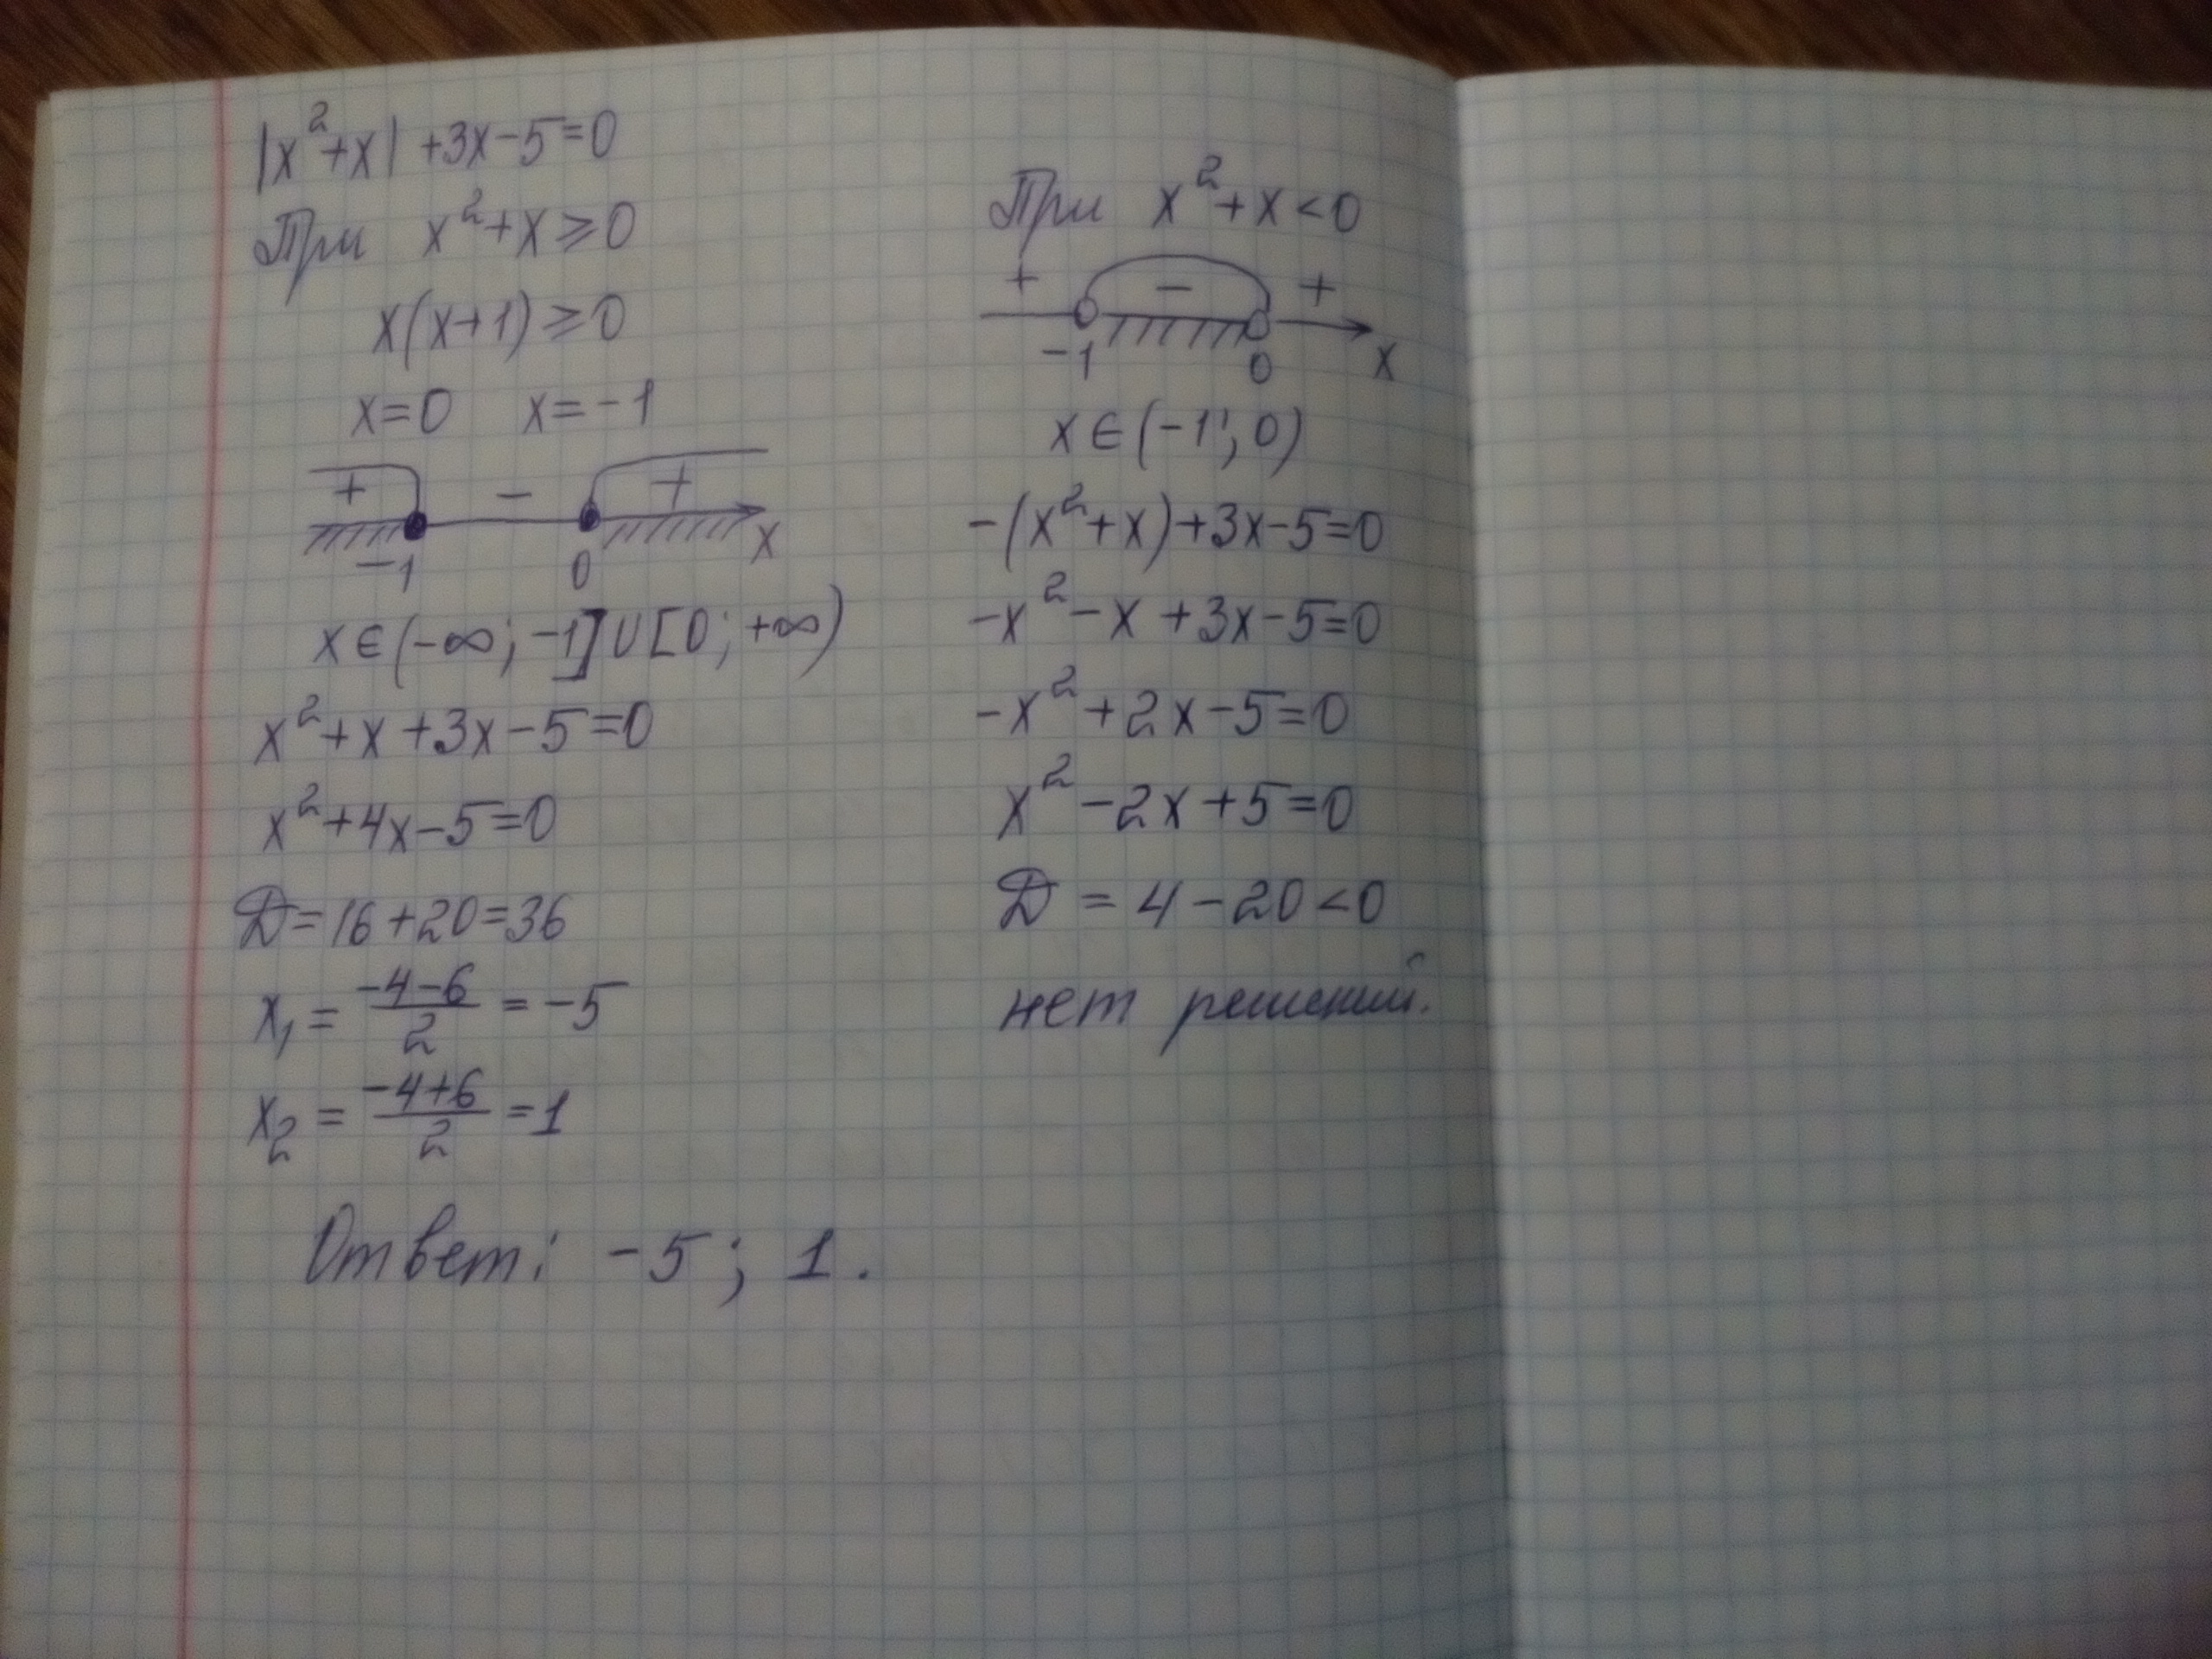 |x²+x| +3x-5=0
При x²+x≥0
x(x+1)≥0
x=0 x=-1
+ - +
-1 0 x
x∈(-∞; -1]∪[0; +∞)
x²+x+3x-5=0
x²+4x-5=0
D=16+20=36
x₁ = (-4-6)/2 = -5
x₂ = (-4+6)/2 = 1
Ответ: -5; 1.
При x²+x<0
+ - +
-1 0 x
x∈(-1; 0)
-(x²+x)+3x-5=0
-x²-x+3x-5=0
-x²+2x-5=0
x²-2x+5=0
D = 4-20<0
нет решений.